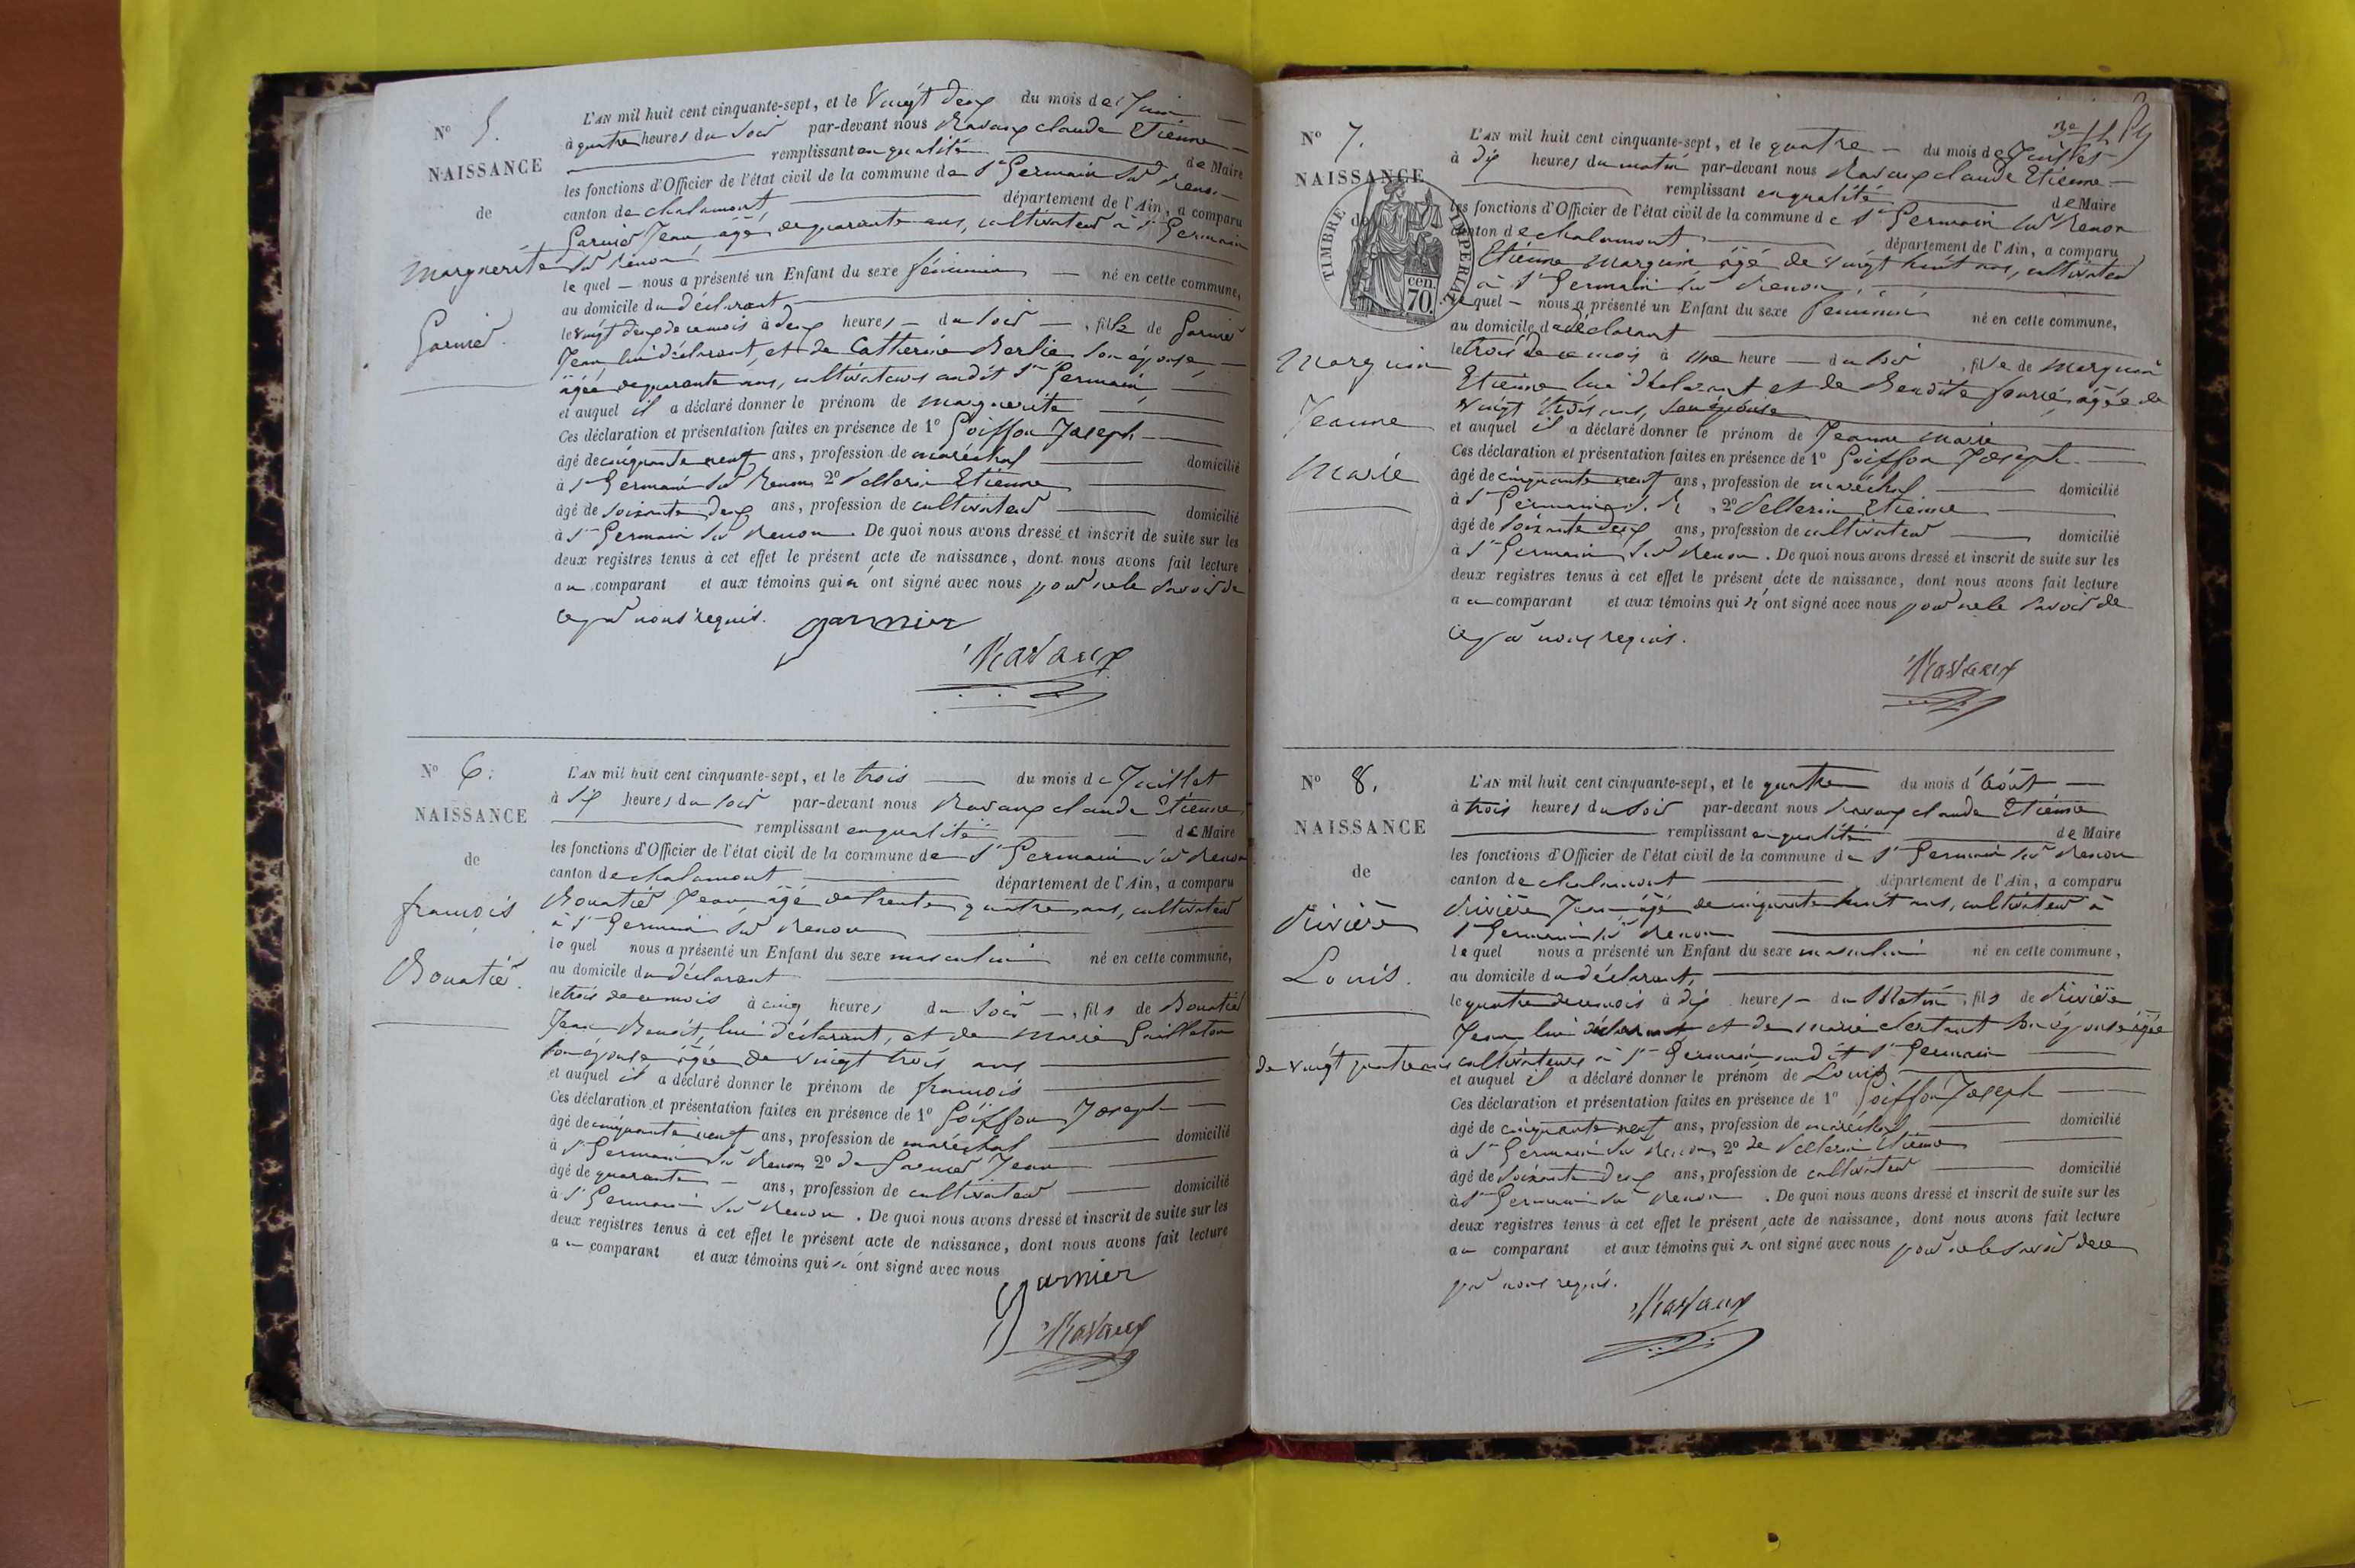 N° 5.
NAISSANCE
de
Marguerite
Garnier.
L'AN mil huit cent cinquante-sept, et le Vingt deux du mois de Juin
à quatre heures du soir par-devant nous Ravaux claude Etienne
remplissant en qualité de Maire
les fonctions d'Officier de l'état civil de la commune de St Germain sur Renon
canton de chalamont département de l'Ain, a comparu
Garnier Jean, âgé de quarante ans, cultivateur à St Germain
sur Renon,
lequel nous a présenté un Enfant du sexe féminin né en cette commune,
au domicile du déclarant,
le vingt deux de ce mois à deux heures du soir, fille de Garnier
Jean, lui déclarant, et de Catherine Berlie son épouse,
âgée de quarante ans, cultivateurs audit St Germain
et auquel il a déclaré donner le prénom de Marguerite
Ces déclaration et présentation faites en présence de 1° Goiffon Joseph
âgé de cinquante neuf ans, profession de maréchal domicilié
à St Germain sur Renon 2° Pellerin Etienne
âgé de soixante deux ans, profession de cultivateur domicilié
à St Germain sur Renon. De quoi nous avons dressé et inscrit de suite sur les
deux registres tenus à cet effet le présent acte de naissance, dont nous avons fait lecture
au comparant et aux témoins qui n'ont signé avec nous pour ne le savoir de
ce par nous requis.
garnier
Ravaux
N° 6.
NAISSANCE
de
françois
Bonatier.
L'AN mil huit cent cinquante-sept, et le trois du mois de Juillet
à six heures du soir par-devant nous Ravaux claude Etienne
remplissant en qualité de Maire
les fonctions d'Officier de l'état civil de la commune de St Germain sur Renon
canton de chalamont département de l'Ain, a comparu
Bonatier Jean, âgé de trente quatre ans, cultivateur
à St Germain sur Renon
lequel nous a présenté un Enfant du sexe masculin né en cette commune,
au domicile du déclarant
le trois de ce mois à cinq heures du soir, fils de Bonatier
Jean Benoit, lui déclarant, et de Marie Guillaton
son épouse âgée de vingt trois ans
et auquel il a déclaré donner le prénom de françois
Ces déclaration et présentation faites en présence de 1° Goiffon Joseph
âgé de cinquante neuf ans, profession de maréchal domicilié
à St Germain sur Renon 2° de Garnier Jean
âgé de quarante ans, profession de cultivateur domicilié
à St Germain sur Renon. De quoi nous avons dressé et inscrit de suite sur les
deux registres tenus à cet effet le présent acte de naissance, dont nous avons fait lecture
au comparant et aux témoins qui n'ont signé avec nous
garnier
Ravaux
N° 7.
NAISSANCE
de
TIMBRE IMPERIAL
70 cen.
Marguin
Jeanne
Marie
L'AN mil huit cent cinquante-sept, et le quatre du mois de Juillet
à dix heures du matin par-devant nous Ravaux claude Etienne
remplissant en qualité de Maire
les fonctions d'Officier de l'état civil de la commune de St Germain sur Renon
canton de chalamont département de l'Ain, a comparu
Etienne Marguin âgé de vingt huit ans, cultivateur
à St Germain sur Renon,
lequel nous a présenté un Enfant du sexe féminin né en cette commune,
au domicile du déclarant
le trois de ce mois à une heure du soir, fille de Marguin
Etienne lui déclarant et de Benoite âgée de
vingt trois ans, son épouse
et auquel il a déclaré donner le prénom de Jeanne Marie
Ces déclaration et présentation faites en présence de 1° Goiffon Joseph
âgé de cinquante neuf ans, profession de maréchal domicilié
à St Germain s. R. 2° Pellerin Etienne
âgé de soixante deux ans, profession de cultivateur domicilié
à St Germain sur Renon. De quoi nous avons dressé et inscrit de suite sur les
deux registres tenus à cet effet le présent acte de naissance, dont nous avons fait lecture
au comparant et aux témoins qui n'ont signé avec nous pour ne le savoir de
ce par nous requis.
Ravaux
N° 8.
NAISSANCE
de
Rivière
Louis.
L'AN mil huit cent cinquante-sept, et le quatre du mois d'Août
à trois heures du soir par-devant nous Ravaux claude Etienne
remplissant en qualité de Maire
les fonctions d'Officier de l'état civil de la commune de St Germain sur Renon
canton de chalamont département de l'Ain, a comparu
Rivière Jean, âgé de cinquante huit ans, cultivateur à
St Germain sur Renon
lequel nous a présenté un Enfant du sexe masculin né en cette commune,
au domicile du déclarant,
le quatre de ce mois à dix heures du Matin, fils de Rivière
Jean lui déclarant et de Marie son épouse âgée
de vingt quatre ans cultivateurs à St Germain audit St Germain
et auquel il a déclaré donner le prénom de Louis
Ces déclaration et présentation faites en présence de 1° Goiffon Joseph
âgé de cinquante neuf ans, profession de maréchal domicilié
à St Germain sur Renon, 2° de Pellerin Etienne
âgé de soixante deux ans, profession de cultivateur domicilié
à St Germain sur Renon. De quoi nous avons dressé et inscrit de suite sur les
deux registres tenus à cet effet le présent acte de naissance, dont nous avons fait lecture
au comparant et aux témoins qui n'ont signé avec nous pour ne le savoir de ce
par nous requis.
Ravaux